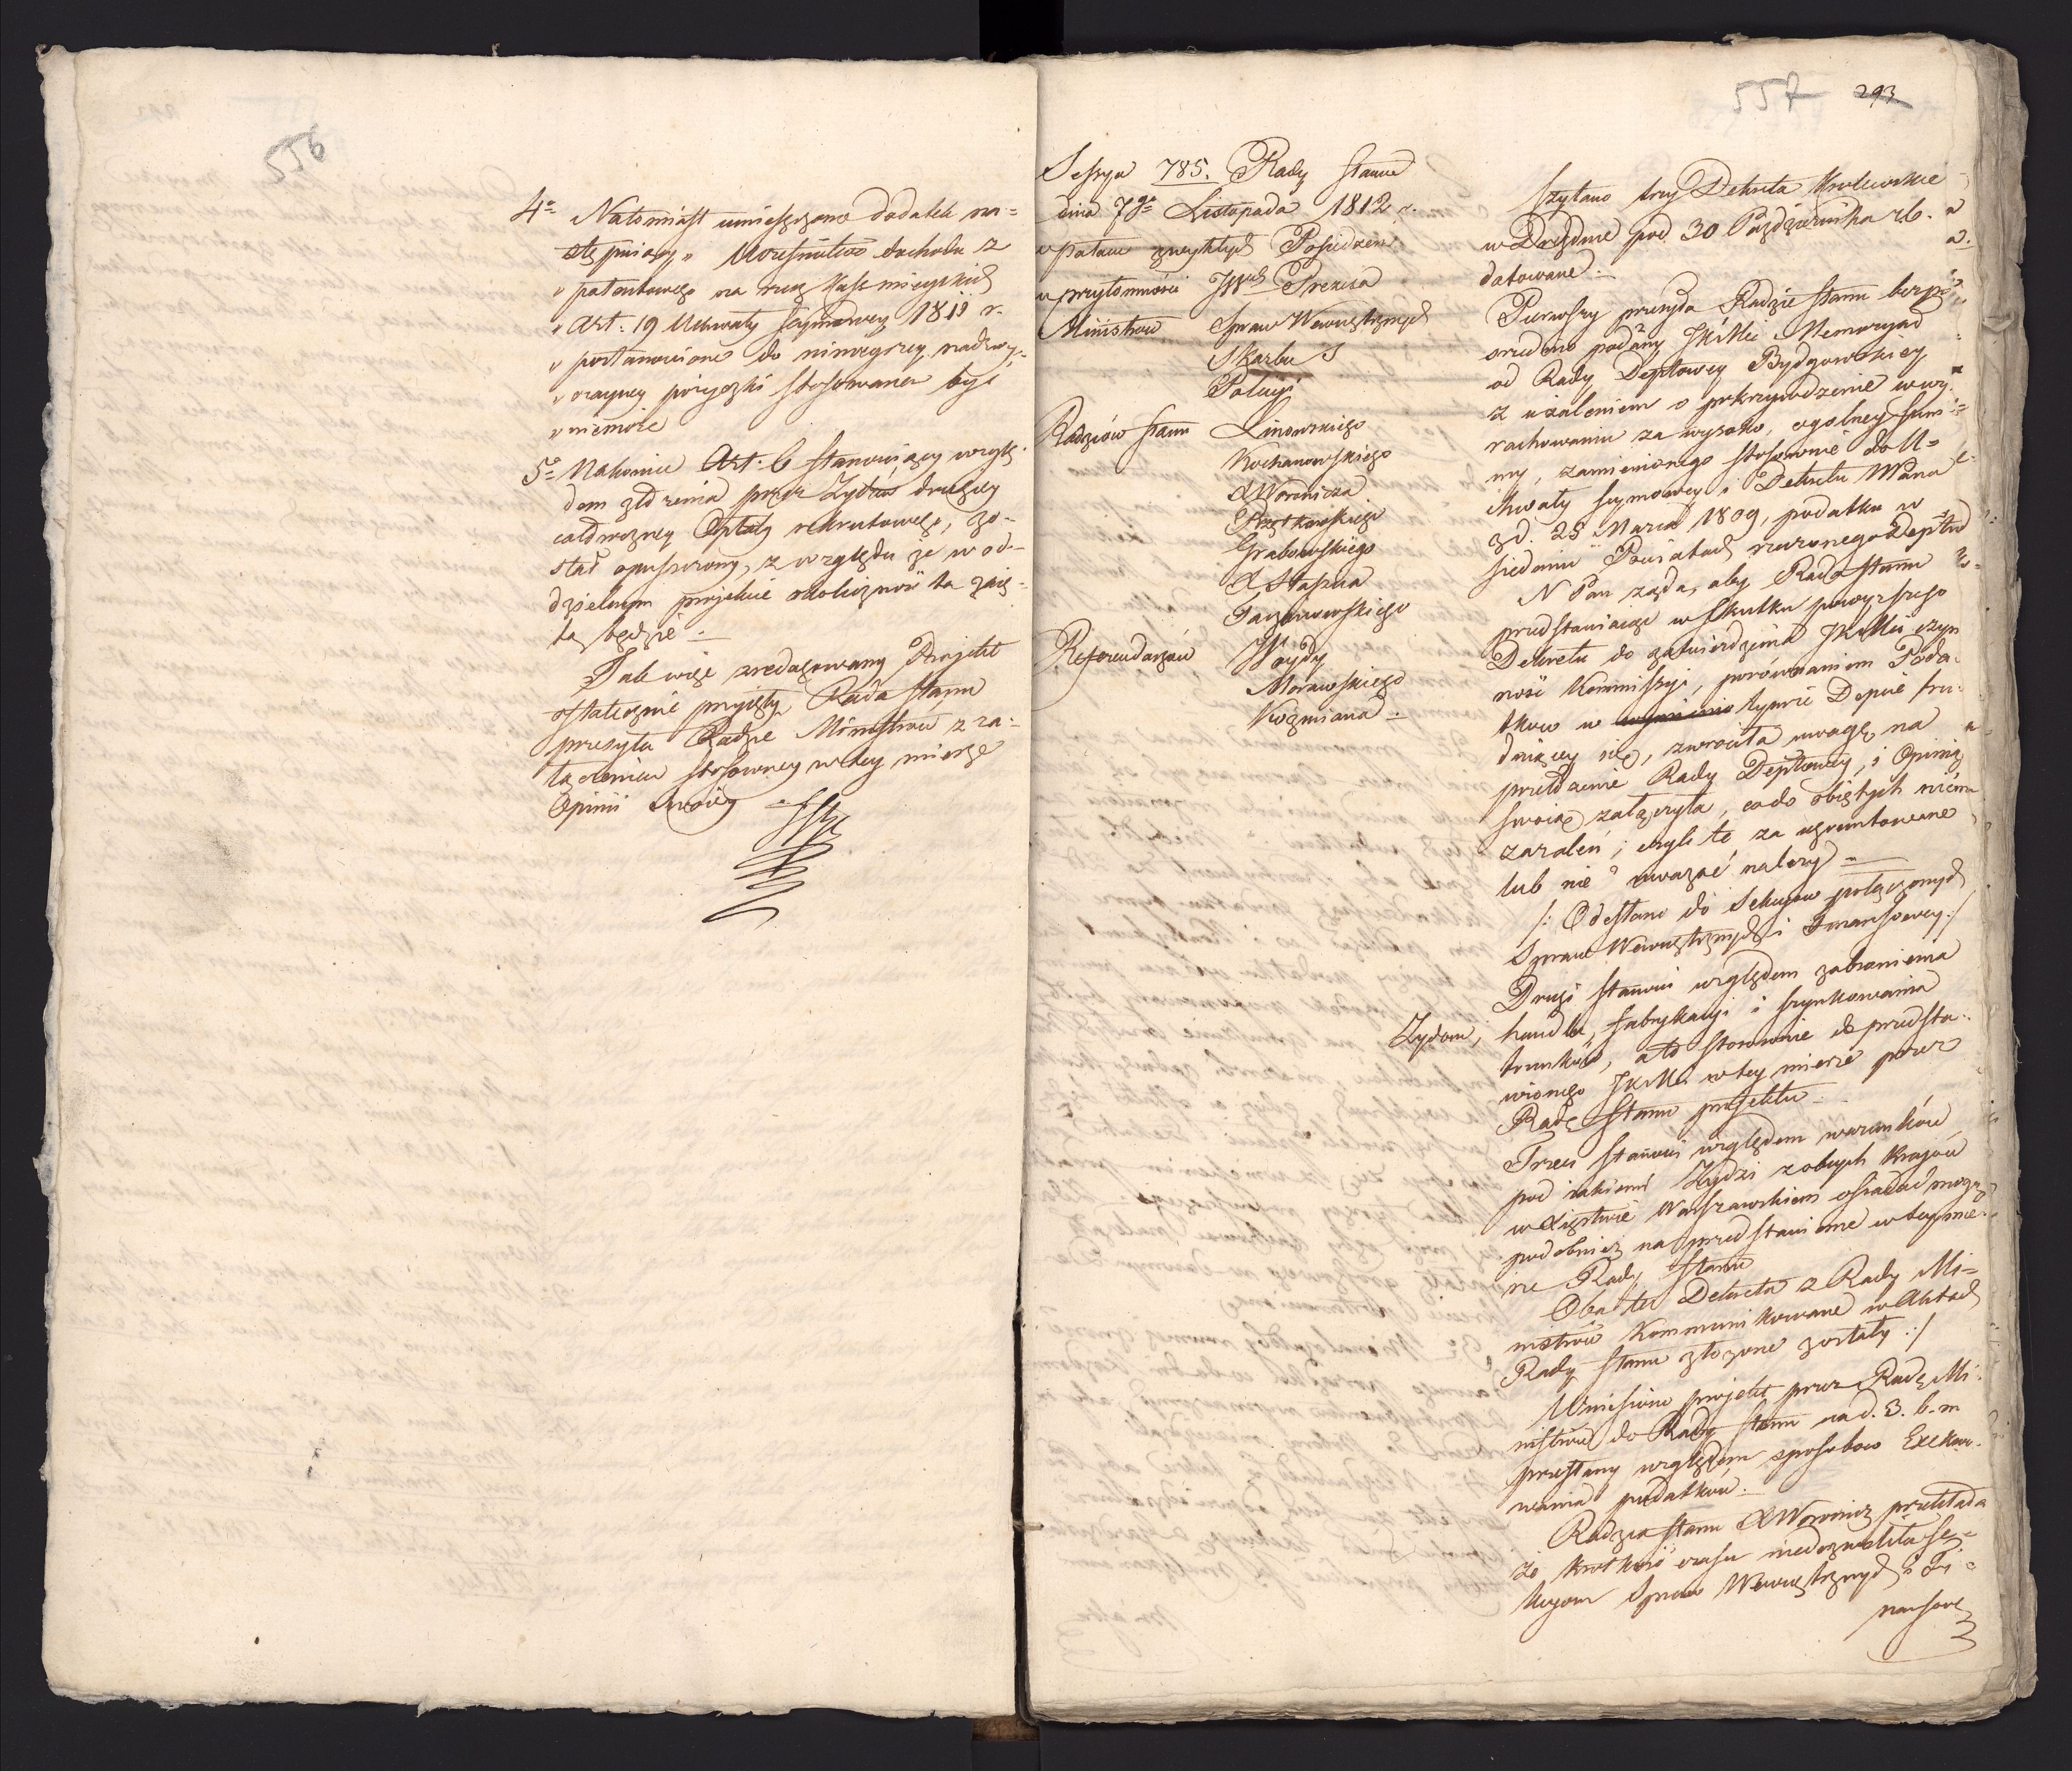 556
4o Natomiast umieszczono dodatek na=
stępuiący „ Uczestnictwo dochodu z
„ patentowego na rzecz Kass mieyskich
„ Art: 19 Uchwały Seymowey 1811 r.
„ postanowione do ninieyszey nadzwy=
„ czayney pożyczki stosowane być
„ niemoże
5o Nakoniec Art: 6 stanowiący wzglę=
dem złożenia przez Żydów drugiey
całoroczney Opłaty rekrutowego, zo=
stał opuszczony, z względu że w od=
dzielnym projekcie okoliczność ta zaię=
tą będzie.
Tak więc zredagowany Projekt
ostatecznie przyięty, Rada Stanu
przesyła Radzie Ministrów z za=
łączeniem stosowney w tey mierze
Opinii swoiey
557 293
Sessya 785. Rady Stanu
dnia 7go Listopada 1812 r.
w pałacu zwykłych Posiedzeń
w przytomności JWch Prezesa
Ministrów Spraw Wewnętrznych
Skarbu
Policyi
Radzców Stanu Linowskiego
Kochanowskiego
X Woronicza
Grabowskiego
X Staszica
Referendarzów Woydy
Morawskiego
Koźmiana
Czytano trzy Dekreta Królewskie
w Dreźdnie pod 30 Października rb.
datowane.
Pierwszy przesyła Radzie Stanu bezpo=
średnio podany JKMci Memoryał
od Rady Deptowey Bydgowskiey
z użaleniem o pokrzywdzenie w wy=
rachowaniu za wysoko, ogólney sum=
my, zamienionego stosownie do U=
chwały Seymowey i Dekretu Mana
z d. 25 Marca 1809, podatku w
siedmiu Powiatach rzeczonego Deptu
N Pan żąda, aby Rada Stanu
przedstawiaiąc w skutku powyższego
Dekretu do zatwierdzenia JKMci czyn
ność Kommissyi, porównaniem Poda=
tków w tymże Depcie tru=
dniącey się, zwróciła uwagę na
przełożenie Rady Deptowey, i Opinią
swoię załączyła, co do obiętych niem
zażaleń; czyli te za ugruntowane
lub nie uważać należy
/: Odesłano do Sekcyow połączonych
Spraw Wewnętrznych i Finansowey :/
Drugi stanowi względem zabronienia
Żydom, handlu, fabrykacyi i szynkowania
trunków, a to stosownie do przedsta=
wionego JKMci w tey mierze przez
Radę Stanu projektu
Trzeci stanowi względem warunków
pod iakiemi Żydzi z obcych Kraiów
w Xięstwie Warszawskiem osiadać mogą
podobnież na przedstawienie w tey mie=
rze Rady Stanu
Oba te Dekreta z Rady Mi=
nistrów Kommunikowane w Aktach
Rady Stanu złożone zostały :/
Wniesiono projekt przez Radę Mi=
nistrów do Rady Stanu na d. 3. b. m
przesłany względem sposobów Exekwo=
wania podatków.
Radzca Stanu X Woronicz przekłada
że krótkość czasu niedozwoliła Se=
kcyom Spraw Wewnętrznych i Fi=
nansowey